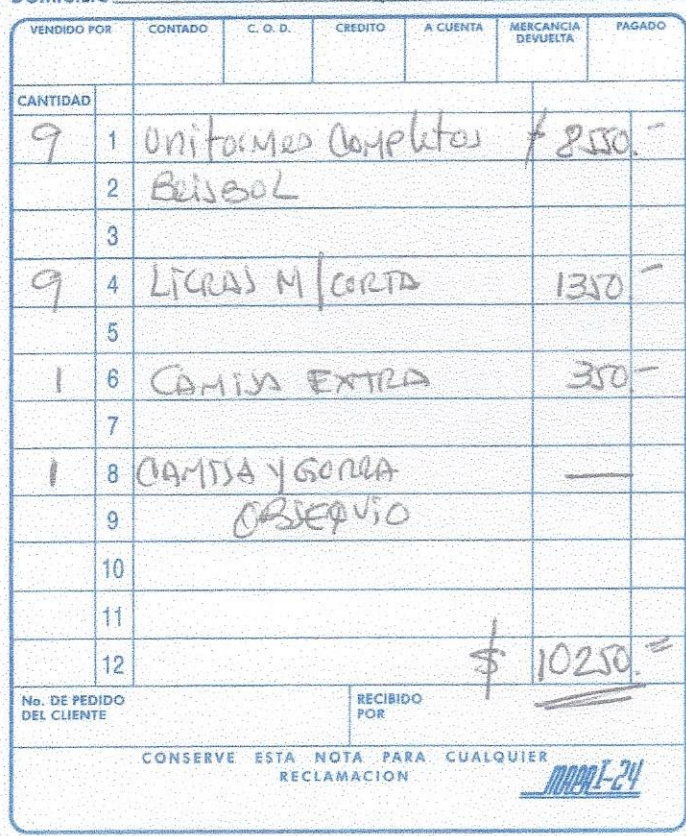 VENDIDO POR CONTADO C. O. D. CREDITO A CUENTA MERCANCIA DEVUELTA PAGADO
CANTIDAD
9 1 Uniformes Completos $ 8550.-
2 BeisBOL
3
9 4 LICRAS M/CORTA 1350-
5
1 6 CAMISA EXTRA 350-
7
1 8 CAMISA Y GORRA —
9 OBSEQUIO
10
11
12 $ 10250.=
No. DE PEDIDO DEL CLIENTE RECIBIDO POR
CONSERVE ESTA NOTA PARA CUALQUIER
RECLAMACION
I-24